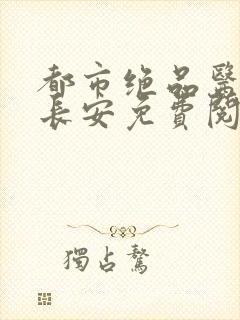 都市绝品醫
長安免費閱
獨占鰲